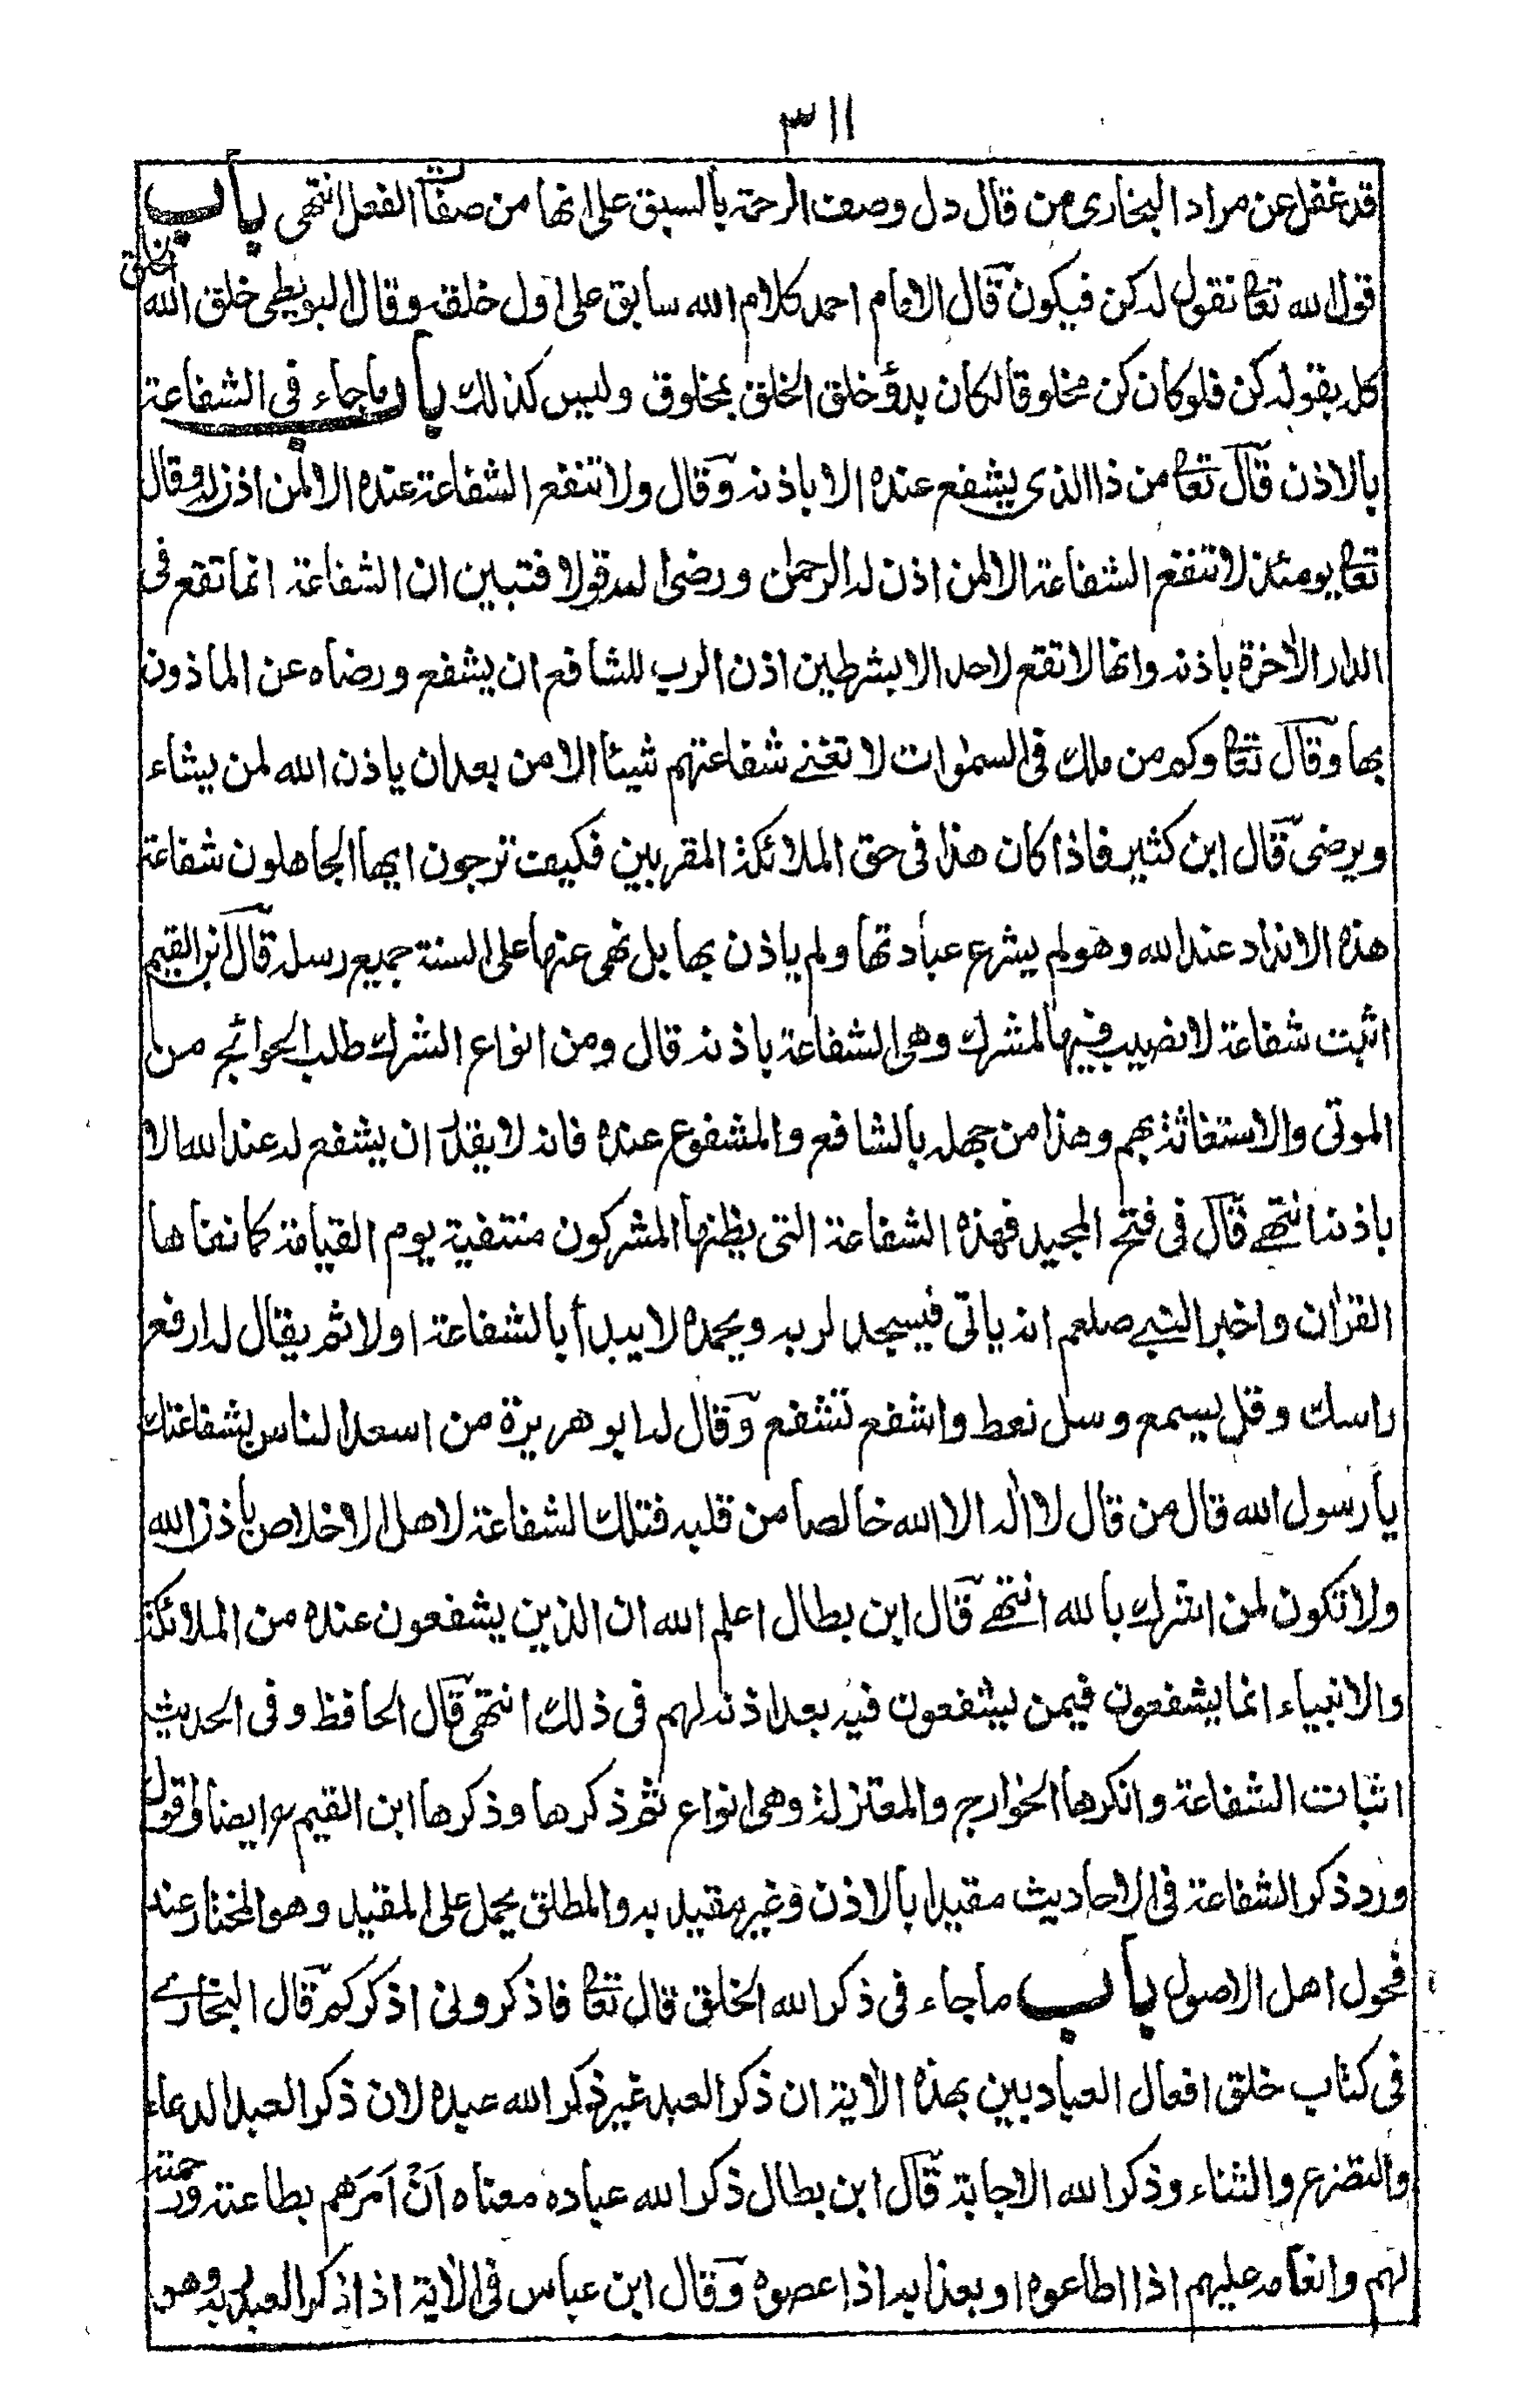 ٣١١
قد غفل عن مراد البخارى من قال دل وصف الرحمة بالسبق على انها من صفات الفعل انتهى باب
قول الله تعا نقول له كن فيكون قال الامام احمد كلام الله سابق على اول خلقه وقال البويطى خلق الله الخلق
كله بقوله كن فلو كان كن مخلوقا لكان بدؤ خلق الخلق بمخلوق وليس كذلك باب ما جاء فى الشفاعة
بالاذن قال تعا من ذا الذى يشفع عنده الا باذنه وقال ولا تنفع الشفاعة عنده الا لمن اذن له وقال
تعا يومئذ لا تنفع الشفاعة الا لمن اذن له الرحمن ورضى له قولا فتبين ان الشفاعة انما تقع فى
الدار الأخرة باذنه وانها لا تقع لاحد الا بشرطين اذن الرب للشافع ان يشفع ورضاه عن الماذون
بها وقال تعا وكم من ملك فى السموات لا تغنے شفاعتهم شيئا الا من بعد ان ياذن الله لمن يشاء
ويرضى قال ابن كثير فاذا كان هذا فى حق الملائكة المقربين فكيف ترجون ايها الجاهلون شفاعة
هذه الانداد عند الله وهو لم يشرع عبادتها ولم ياذن بها بل نهى عنها على السنة جميع رسله قال ابن القيم
اثبت شفاعة لا نصيب فيها لمشرك وهى الشفاعة باذنه قال ومن انواع الشرك طلب الحوائج من
الموتى والاستغاثة بهم وهذا من جهله بالشافع والمشفوع عنده فانه لا يقدر ان يشفع له عند الله الا
باذنه انتهے قال فى فتح المجيد فهذه الشفاعة التى يظنها المشركون منتفية يوم القيامة كما نفاها
القرأن واخبر النبے صلعم انه ياتى فيسجد لربه ويحمده لا يبدأ بالشفاعة اولا ثم يقال له ارفع
راسك وقل يسمع وسل نعط واشفع تشفع وقال له ابو هريرة من اسعد الناس بشفاعتك
يا رسول الله قال من قال لا اله الا الله خالصا من قلبه فتلك الشفاعة لاهل الاخلاص باذن الله
ولا تكون لمن اشرك بالله انتهے قال ابن بطال اعلم الله ان الذين يشفعون عنده من الملائكة
والانبياء انما يشفعون فيمن يشفعون فيه بعد اذنه لهم فى ذلك انتهى قال الحافظ وفى الحديث
اثبات الشفاعة وانكرها الخوارج والمعتزلة وهى انواع ثم ذكرها وذكرها ابن القيم رح ايضا واقول
ورد ذكر الشفاعة فى الاحاديث مقيدا بالاذن وغير مقيد به والمطلق يحمل على المقيد وهو المختار عند
فحول اهل الاصول باب ما جاء فى ذكر الله الخلق قال تعا فاذكرونى اذكركم قال البخارے
فى كتاب خلق افعال العباد بين بهذه الأية ان ذكر العبد غير ذكر الله عبده لان ذكر العبد الدعاء
والتضرع والثناء وذكر الله الاجابة قال ابن بطال ذكر الله عباده معناه اَنْ اَمَرَهم بطاعته ورحمته
لهم وانعامه عليهم اذا اطاعوه او بعذابه اذا عصوه وقال ابن عباس فى الأية اذا ذكر العبد ربه وهو